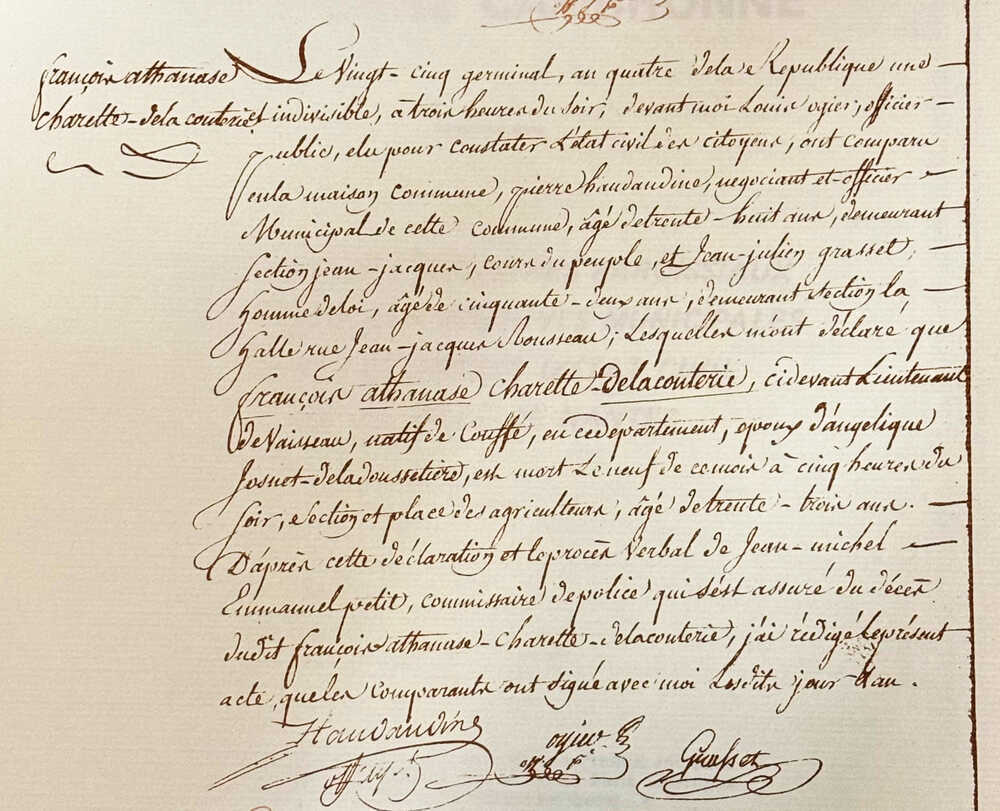 françois athanase
charette-delacouterie
Le Vingt-cinq germinal, an quatre dela Republique une
et indivisible, à trois heures du soir, devant moi Louis ogier, officier
public, elu pour constater L'état civil des citoyens, ont comparu
en la maison commune, pierre haudaudine, negociant et officier
Municipal de cette commune, âgé de trente-huit ans, demeurant
section jean-jacques, cours du peuple, et Jean-julien grasset,
homme de loi, âgé de cinquante-deux ans, demeurant section la
halle rue Jean-jacques Rousseau; Lesquels m'ont déclaré que
françois athanase charette-delacouterie, cidevant Lieutenant
de Vaisseau, natif de Couffé, en ce département, epoux d'angelique
Josnet-deladoussetiere, est mort Le neuf de ce mois à cinq heures du
soir, section et place des agriculteurs, âgé de trente-trois ans.
D'après cette déclaration et le procès Verbal de Jean-michel
Emmanuel petit, commissaire de police qui s'est assuré du décès
dudit françois athanase-charette-delacouterie, j'ai rédigé le présent
acte, que les comparants ont signé avec moi Lesdits jour et an.
Haudaudine
ogier
Grasset